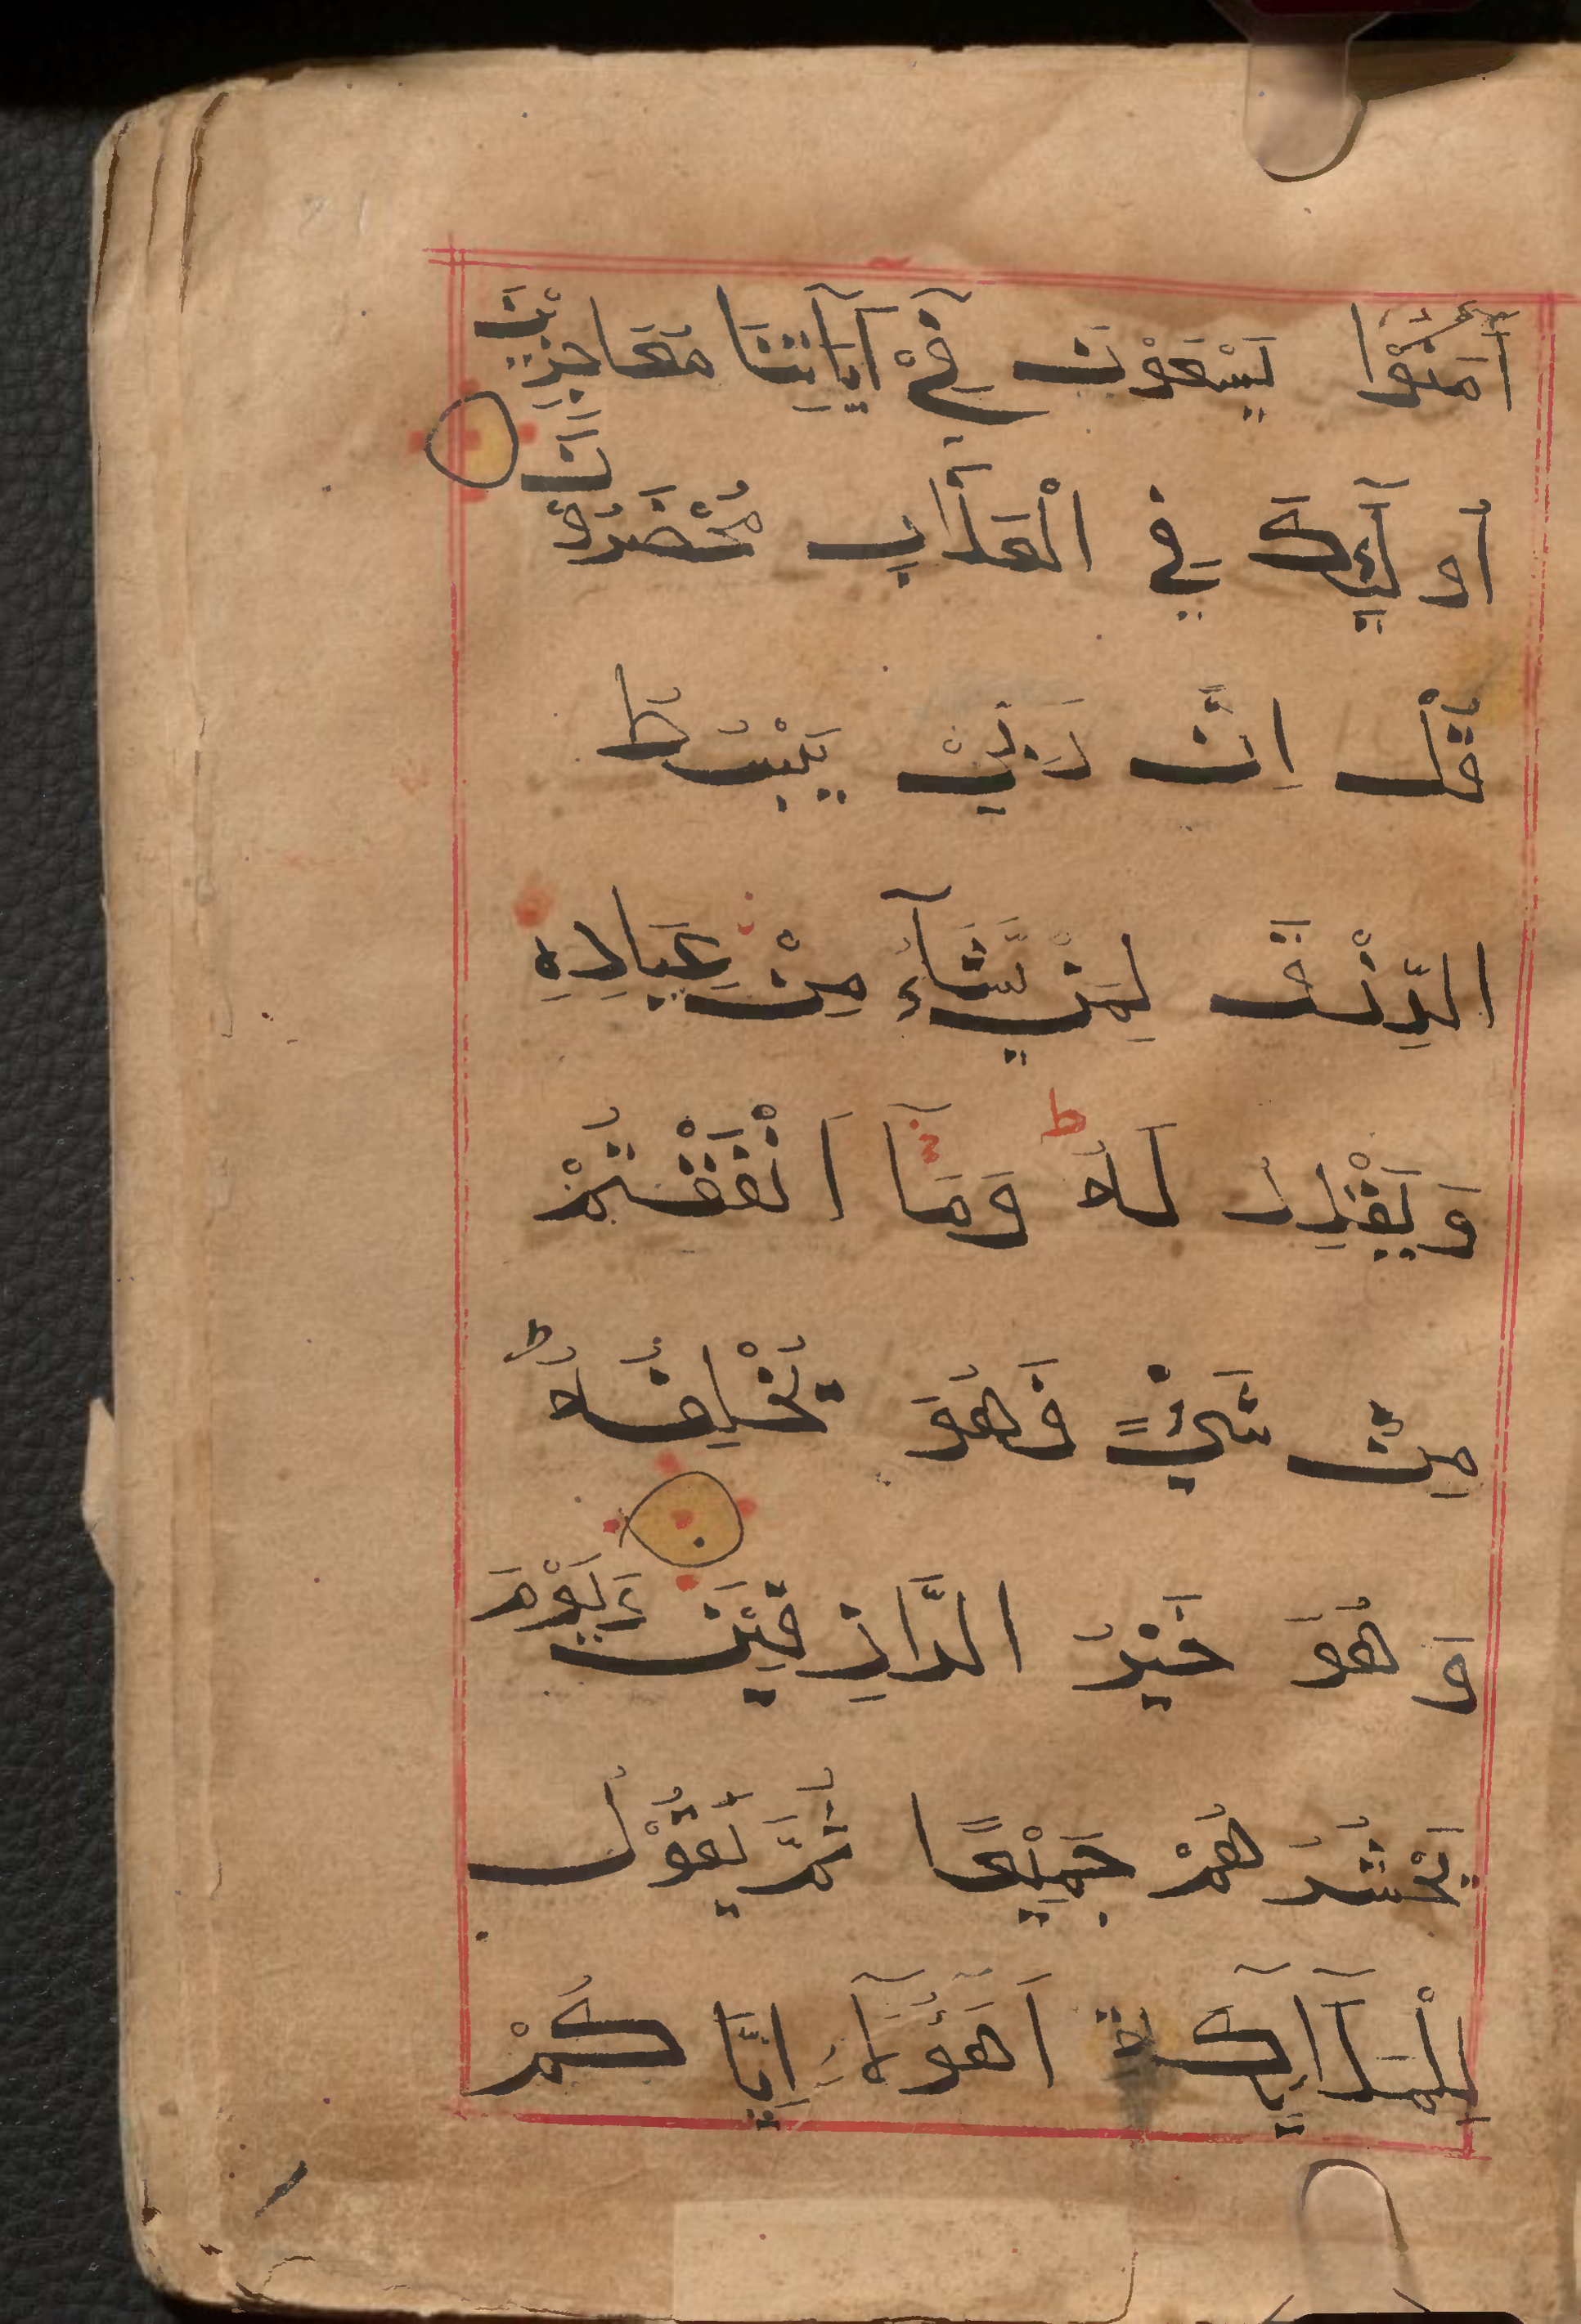 اٰمَنُوْا يَسْعَوْنَ فِيْٓ اٰيَاتِنَا مُعَاجِزِيْنَ
اُو لَٓئِكَ فِي الْعَذَابِ مُحْضَرُوْنَ
قُلْ اِنَّ رَبِّيْ يَبْسُطُ
الرِّزْقَ لِمَنْ يَّشَآءُ مِنْ عِبَادِهِ
وَ يَقْدِرُ لَهُ ط وَمَآ اَنْفَقْتُمْ
مِنْ شَيْءٍ فَهُوَ يُخْلِفُهُ ط
وَ هُوَ خَيْرُ الرَّازِقِيْنَ وَيَوْمَ
يَحْشُرُ هُمْ جَمِيْعًا ثُمَّ يَقُوْلُ
لِلْمَلَآئِكَةِ اَهَؤُلَآءِ اِيَّا كُمْ